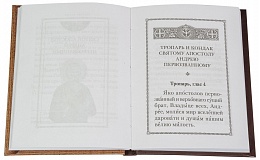 ТРОПАРЬ И КОНДАК
СВЯТОМУ АПОСТОЛУ
АНДРЕЮ
ПЕРВОЗВАННОМУ
Тропарь, глас 4
Яко апостолов перво-
званный и верховнаго сущий
брат, Владыце всех, Анд-
рее, молися мир вселенней
даровати и душам нашим
велию милость.